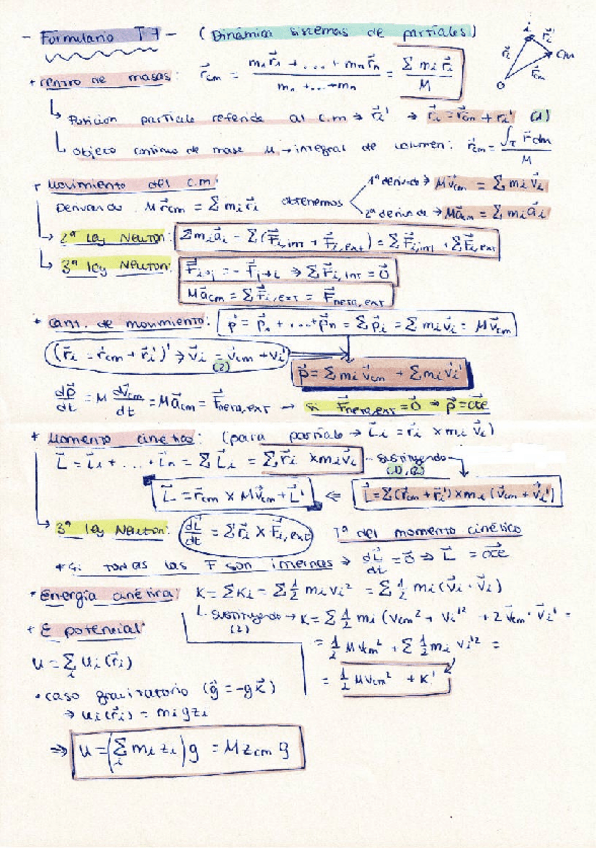 - Formulario T7 - (Dinámica sistemas de partículas)
* centro de masas: r⃗cm = (m₁r⃗₁ + ... + mₙr⃗ₙ)/(m₁ + ... + mₙ) = Σmᵢr⃗ᵢ/M
i r⃗ᵢ r⃗ᵢ' CM r⃗cm O
↳ Posición partícula referida al c.m → r⃗ᵢ' → r⃗ᵢ = r⃗cm + r⃗ᵢ' (1)
↳ Objeto continuo de masa M → integral de volumen: r⃗cm = ∫r⃗dm/M
* Movimiento del c.m:
Derivando Mr⃗cm = Σmᵢr⃗ᵢ obtenemos
1ª derivada → Mv⃗cm = Σmᵢv⃗ᵢ
2ª derivada → Ma⃗cm = Σmᵢa⃗ᵢ
↳ 2ª ley Newton: Σmᵢa⃗ᵢ = Σ(F⃗ᵢ,int + F⃗ᵢ,ext) = ΣF⃗ᵢ,int + ΣF⃗ᵢ,ext
↳ 3ª ley Newton: F⃗ᵢ→ⱼ = -F⃗ⱼ→ᵢ ⇒ ΣF⃗ᵢ,int = 0⃗
Ma⃗cm = ΣF⃗ᵢ,ext = F⃗neta,ext
* Cant. de movimiento: p⃗ = p⃗₁ + ... + p⃗ₙ = Σp⃗ᵢ = Σmᵢv⃗ᵢ = Mv⃗cm
(r⃗ᵢ = r⃗cm + r⃗ᵢ')' ⇒ v⃗ᵢ = v⃗cm + v⃗ᵢ' (2)
p⃗ = Σmᵢv⃗cm + Σmᵢv⃗ᵢ'
dp⃗/dt = M dv⃗cm/dt = Ma⃗cm = F⃗neta,ext → si F⃗neta,ext = 0⃗ ⇒ p⃗ = cte
* Momento cinético: (para partícula → L⃗ᵢ = r⃗ᵢ × mᵢv⃗ᵢ)
L⃗ = L⃗₁ + ... + L⃗ₙ = ΣL⃗ᵢ = Σr⃗ᵢ × mᵢv⃗ᵢ - sustituyendo (1),(2)
L⃗ = r⃗cm × Mv⃗cm + L⃗' ⇐ L⃗ = Σ(r⃗cm + r⃗ᵢ') × mᵢ(v⃗cm + v⃗ᵢ')
↳ 3ª ley Newton: dL⃗/dt = Σr⃗ᵢ × F⃗ᵢ,ext Tª del momento cinético
* Si todas las F son internas ⇒ dL⃗/dt = 0⃗ ⇒ L⃗ = cte
* Energía cinética: K = ΣKᵢ = Σ½mᵢvᵢ² = Σ½mᵢ(v⃗ᵢ · v⃗ᵢ)
↳ sustituyendo (2) → K = Σ½mᵢ(vcm² + vᵢ'² + 2v⃗cm · v⃗ᵢ') =
* E potencial:
= ½Mvcm² + Σ½mᵢvᵢ'² =
U = ΣᵢUᵢ(r⃗ᵢ)
= ½Mvcm² + K'
· caso gravitatorio (g⃗ = -gk⃗)
→ Uᵢ(r⃗ᵢ) = mᵢgzᵢ
⇒ U = (Σᵢmᵢzᵢ)g = Mzcm g